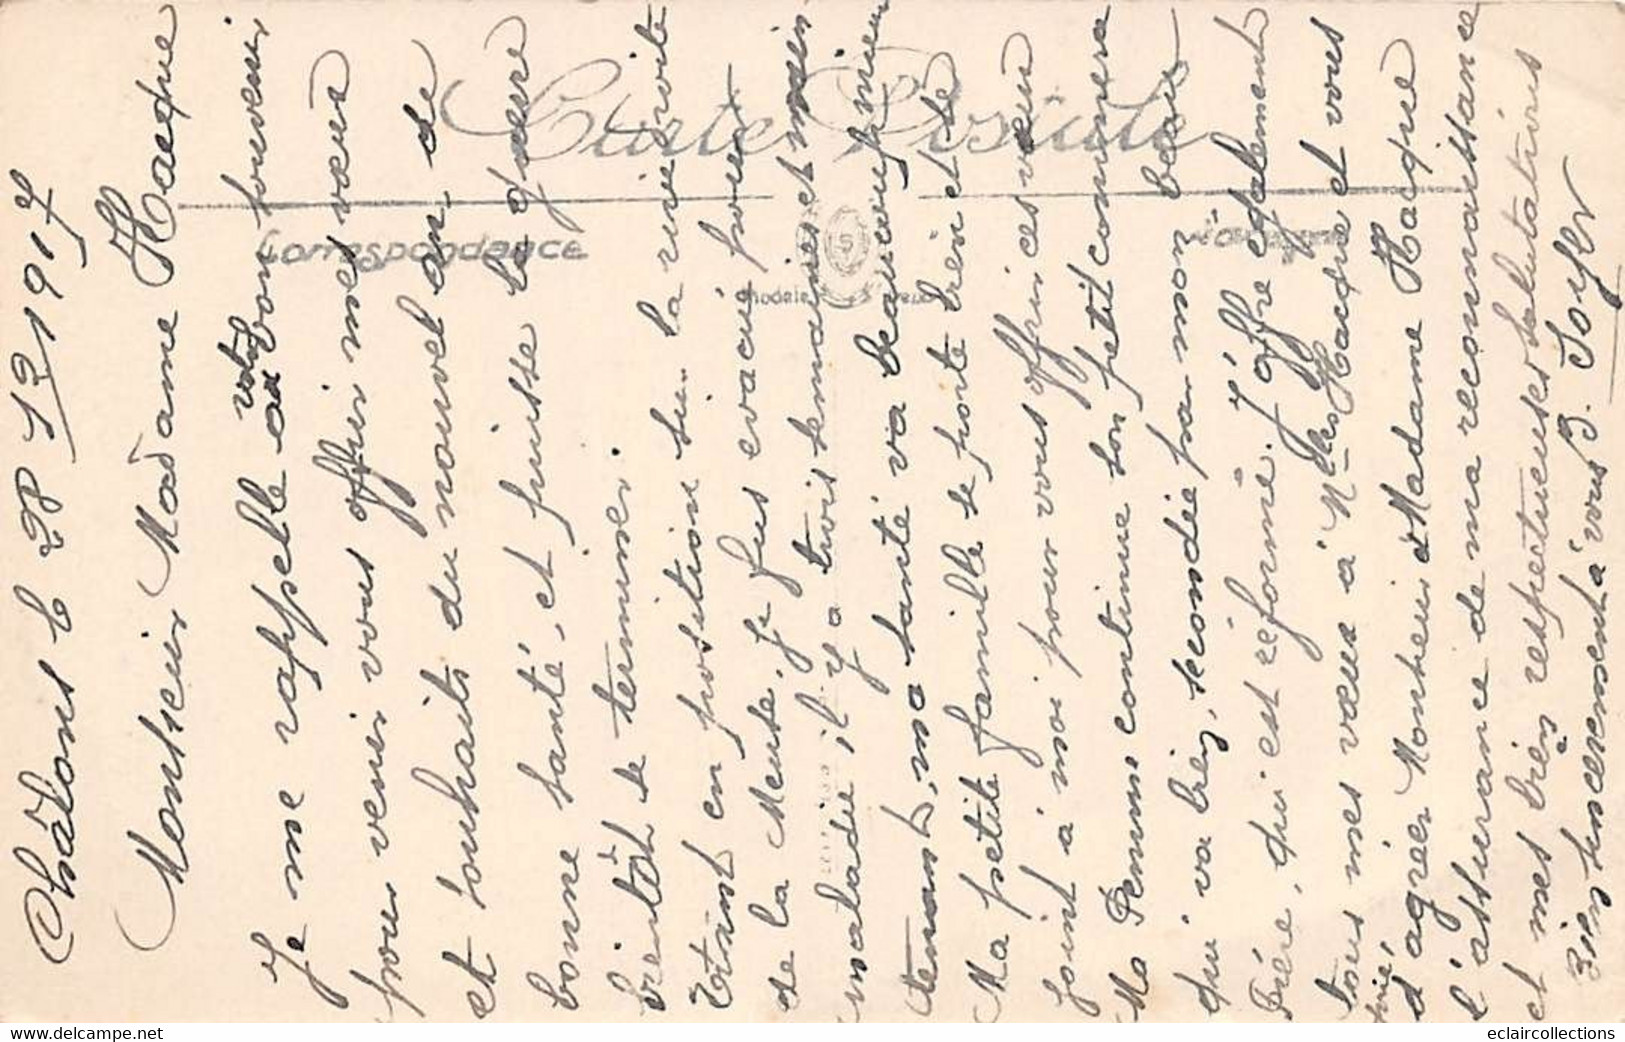 Châlons le 28 12 1917
Monsieur Madame Hacque
Je me rappelle à votre bon souvenir
pour venir vous offrir mes vœux
et souhaits du nouvel an, de
bonne santé, et puisse la guerre
bientôt se terminer.
Etant en positions sur la rive droite
de la Meuse, je fus évacué pour
malade, il y a trois semaines et main
tenant, ma santé va beaucoup mieux
Ma petite famille se porte très bien et se
joint à moi pour vous offrir ces vœux
Ma Femme continue son petit commerce
qui va bien, secondée par mon beau
Frère, qui est réformé. J'offre également
tous mes vœux à Mlles Hacque et vous
prie d'agréer Monsieur et Madame Hacque
l'assurance de ma reconnaissance
et mes bien respectueuses salutations
Bien sincèrement à vous B.
Carte Postale
Correspondance
eclaircollections
www.delcampe.net